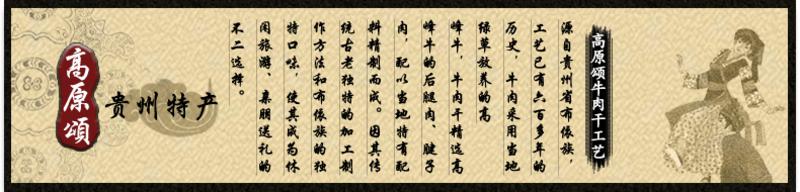 高原颂牛肉干工艺
源自贵州省布依族，
工艺已有六百多年的
历史，牛肉采用当地
绿草放养的高
峰牛，牛肉干精选高
峰牛的后腿肉、腱子
肉，配以当地特有配
料精制而成。因其传
统古老独特的加工制
作方法和布依族的独
特口味，使其成为休
闲旅游、亲朋送礼的
不二选择。
高原頌
貴州特产